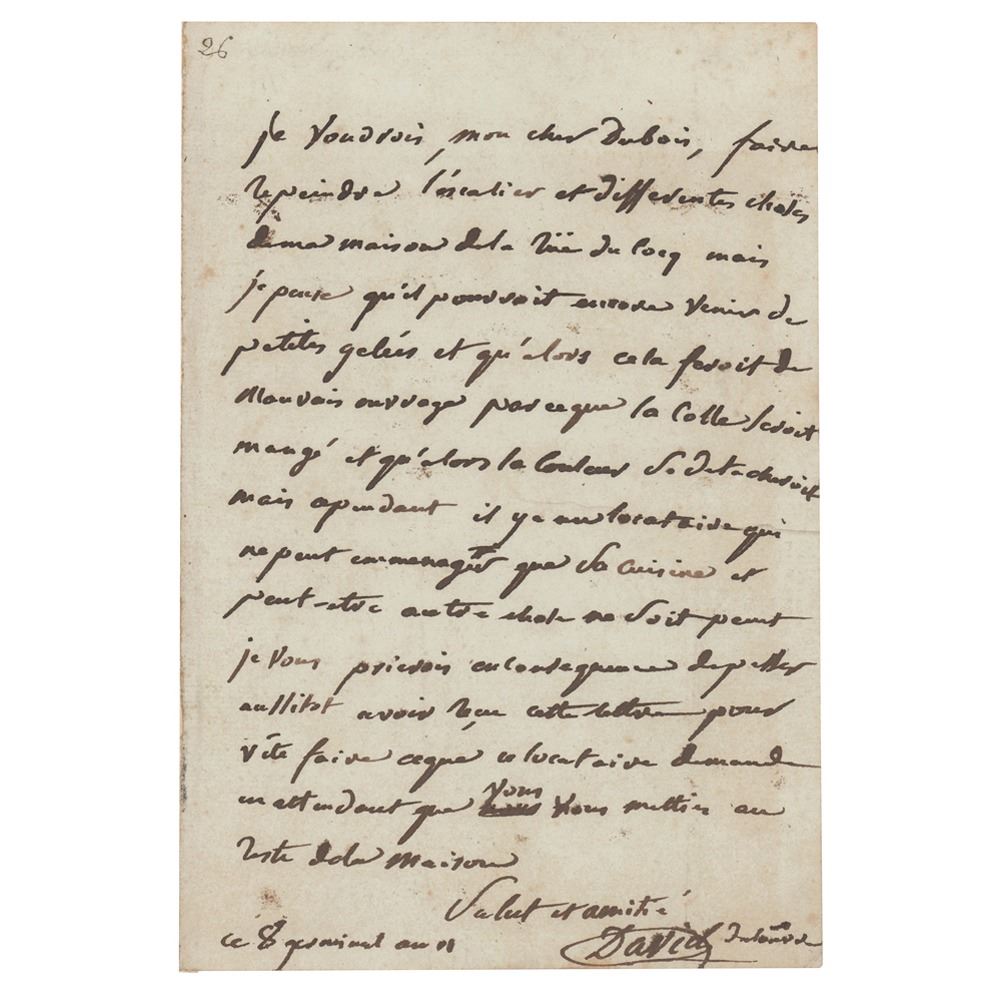 26
je voudrois, mon cher Dubois, faire
repeindre l'escalier et differentes choses
dema maison dela rüe du Cocq mais
je pense qu'il pourroit encore venir de
petites gelées et qu'alors cela feroit de
Mauvais ouvrage parceque la Colle seroit
mangé et qu'alors la Couleur se detacheroit
mais cependant il ya un locataire qui
ne peut emmenager que sa cuisine et
peut-etre autre chose ne soit peint
je vous prierois en consequence de passer
aussitot avoir reçu cette lettre pour
vite faire ceque ce locataire demande
en attendant que vous vous mettiez au
reste dela Maison
Salut et amitié
ce 8 germinal an 11
David